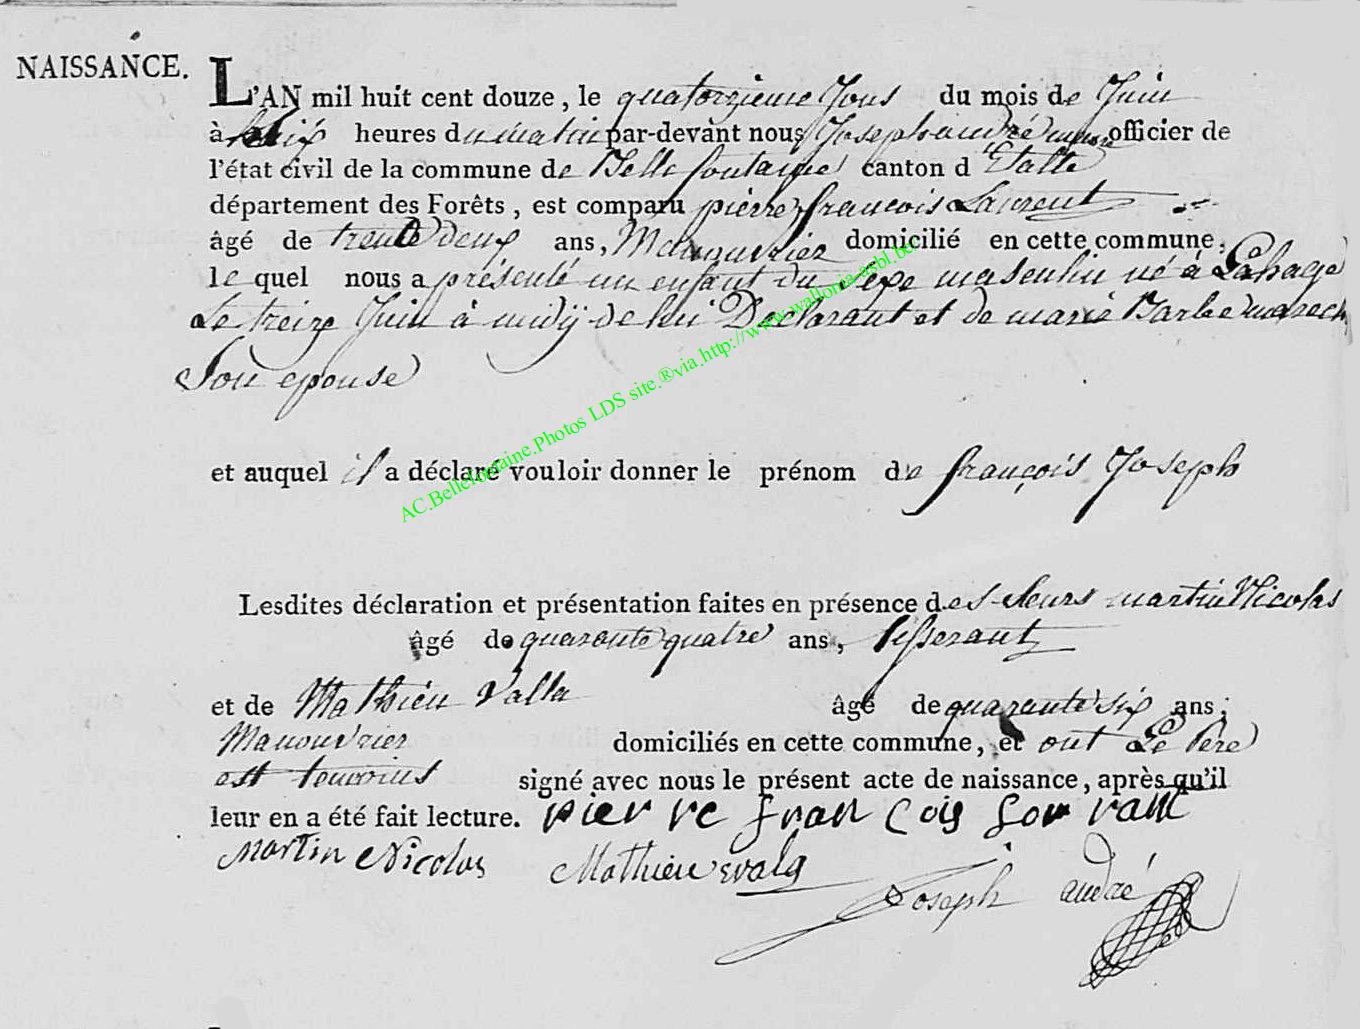 NAISSANCE.
L'AN mil huit cent douze, le quatorzieme Jour du mois de Juin
à dix heures du matin par-devant nous Joseph andré maire officier de
l'état civil de la commune de Bellefontaine canton d'Etalle
département des Forêts, est comparu pierre francois Laurent
âgé de trente deux ans, Manouvrier domicilié en cette commune,
lequel nous a présenté un enfant du sexe masculin né à Lahage
Le treize Juin à midÿ de lui Declarant et de marie Barbe marech
Son epouse
et auquel il a déclaré vouloir donner le prénom de françois Joseph
Lesdites déclaration et présentation faites en présence des sieurs martin Nicolas
âgé de quarante quatre ans, tisserant
et de Mathieu Valla âgé de quarante six ans,
Manouvrier domiciliés en cette commune, et ont Le Père
est temoins signé avec nous le présent acte de naissance, après qu'il
leur en a été fait lecture. pier re fran cois Lor rant
Martin Nicolas Mathieu Joseph andré
AC.Bellefontaine.Photos LDS site.®via.http://www.wallonia-asbl.be/